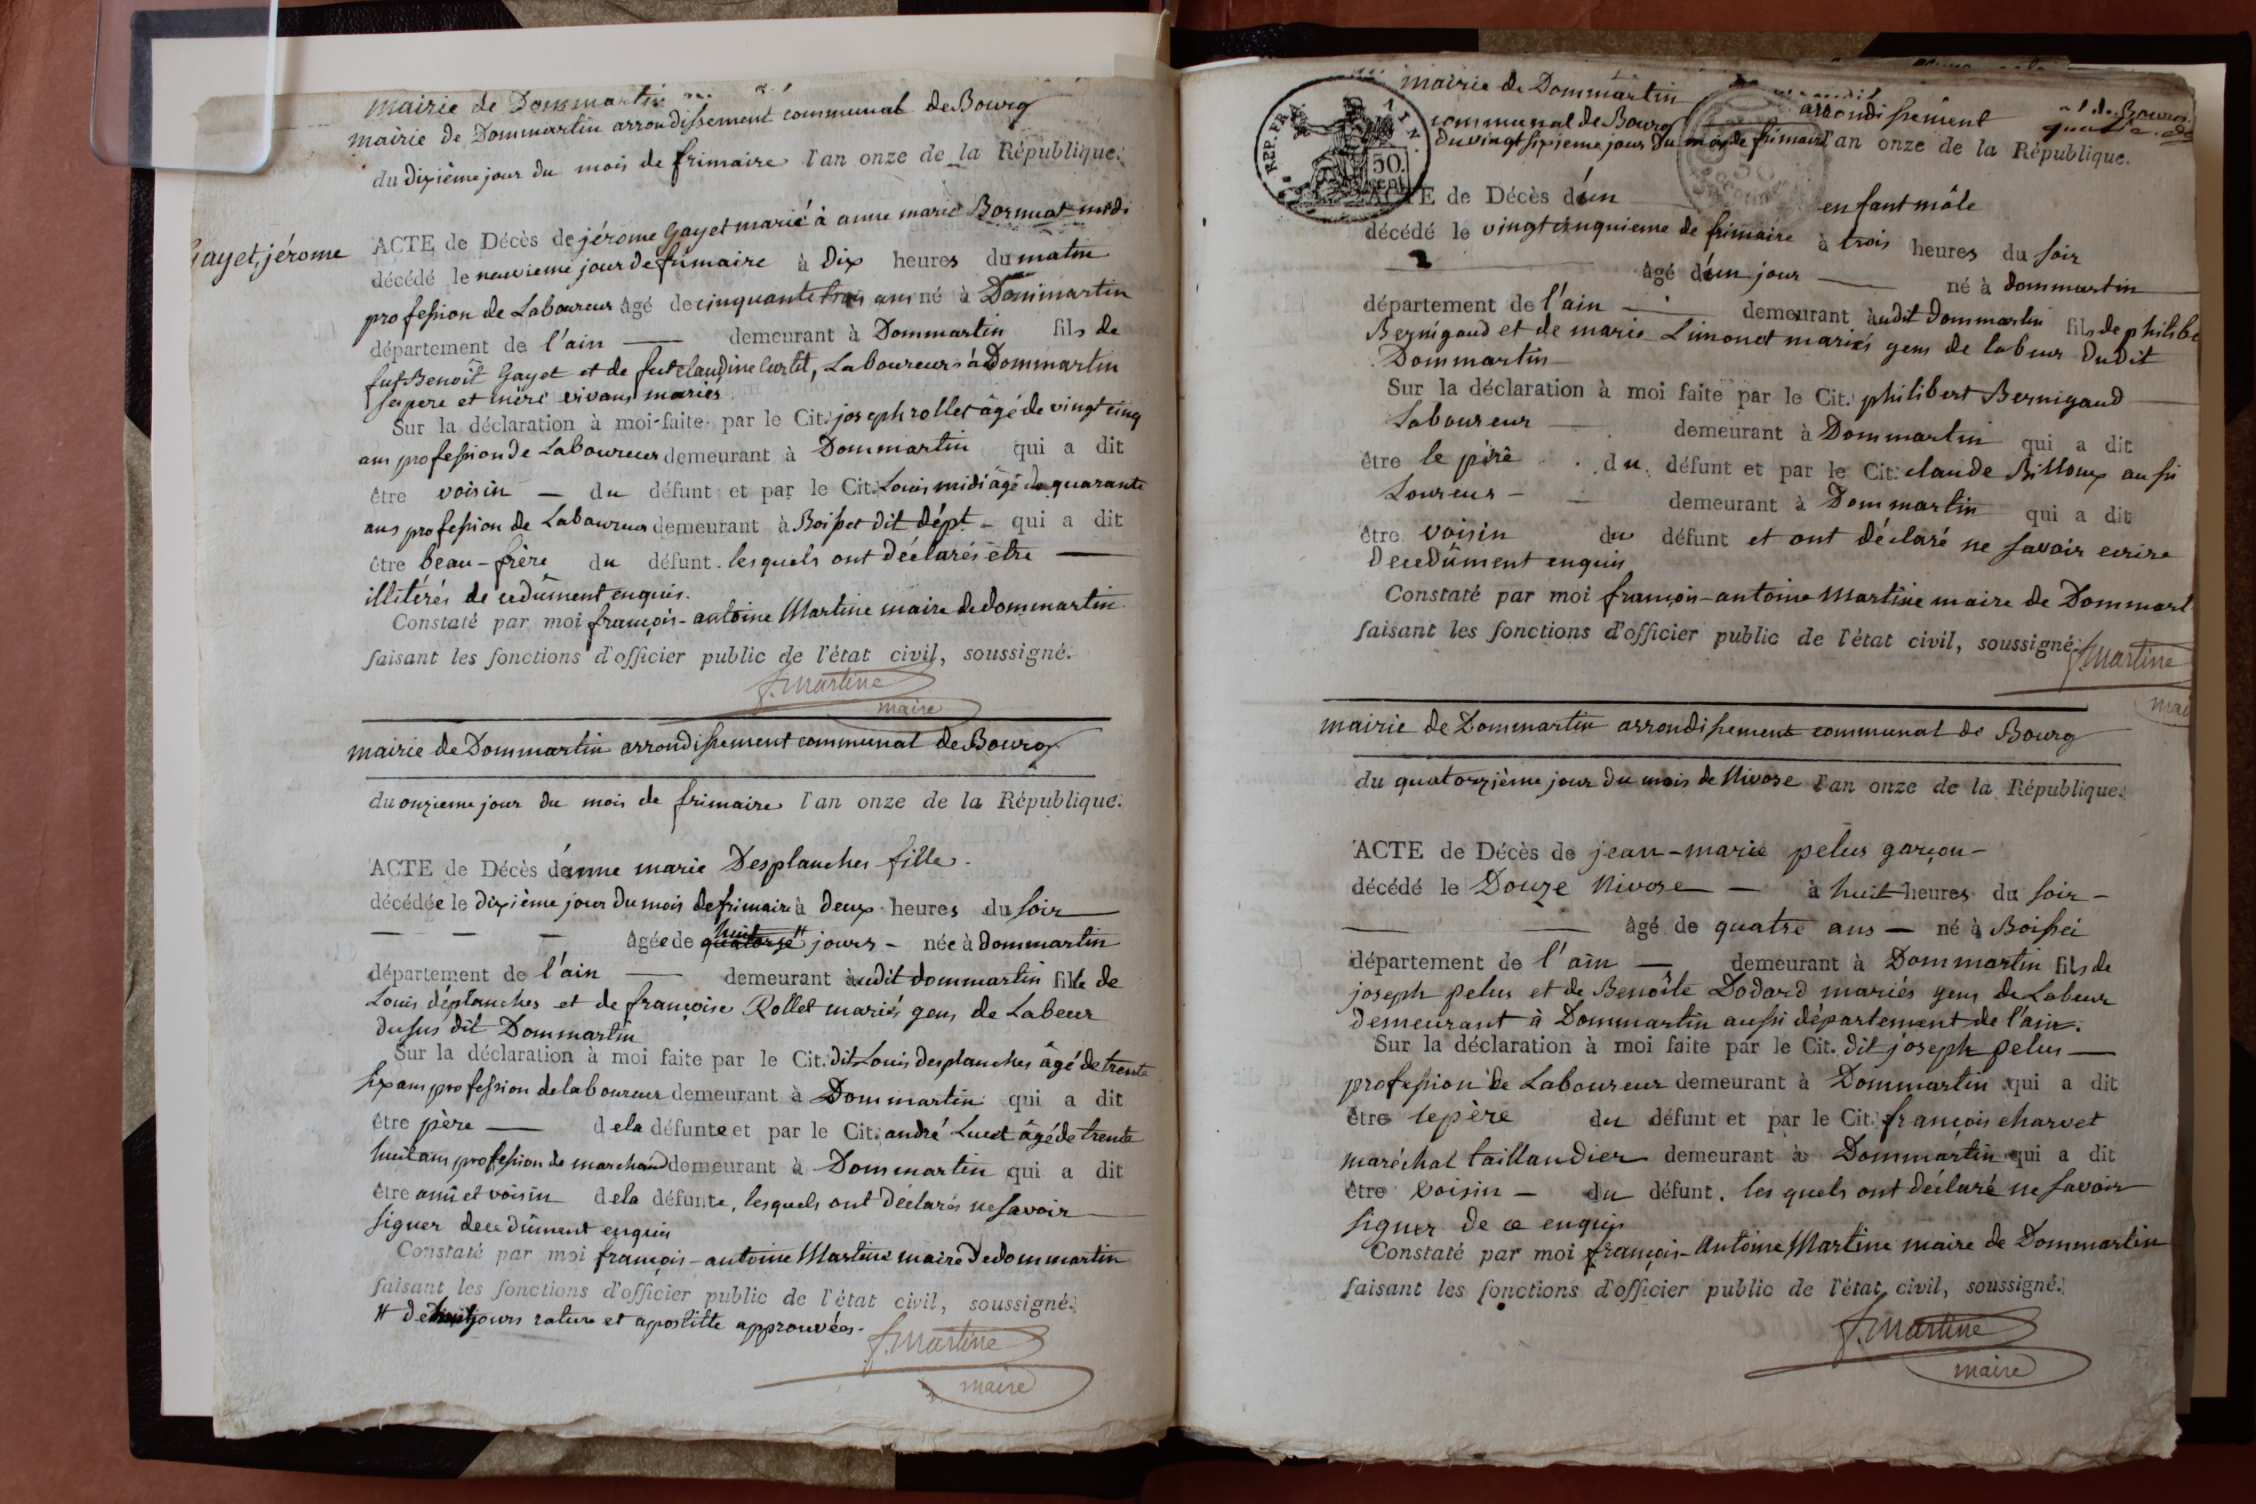 mairie de Dommartin
mairie de Dommartin arrondissement communal de Bourg
du dixième jour du mois de frimaire l'an onze de la République.
Gayet, jérome
ACTE de Décès de jérome Gayet marié à anne marie
décédé le neuvieme jour de frimaire à dix heures du matin
profession de Laboureur âgé de cinquante trois ans né à Dommartin
département de l'ain — demeurant à Dommartin fils de
fut Benoit Gayet et de fut claudine Curtet, Laboureurs à Dommartin
ses pere et mère vivans mariés
Sur la déclaration à moi faite par le Cit. joseph rollet âgé de vingt cinq
ans profession de Laboureur demeurant à Dommartin qui a dit
être voisin — du défunt et par le Cit. Louis midi âgé de quarante
ans profession de Laboureur demeurant à Boisset dit dépt - qui a dit
être beau-frère du défunt. lesquels ont déclarés être —
illitérés de ce dûment enquis.
Constaté par moi françois-antoine Martine maire de dommartin
faisant les fonctions d'officier public de l'état civil, soussigné.
f. Martine
maire
mairie de Dommartin arrondissement communal de Bourg
du onzieme jour du mois de frimaire l'an onze de la République.
ACTE de Décès d'anne marie Desplanches fille.
décédée le dixième jour du mois de frimaire à deux heures du soir
huit
âgée de quatorze # jours - née à Dommartin
département de l'ain — demeurant audit dommartin fille de
Louis déplanches et de françoise Rollet mariés gens de Labeur
dusus dit Dommartin
Sur la déclaration à moi faite par le Cit. dit Louis desplanches âgé de trente
six ans profession de laboureur demeurant à Dommartin qui a dit
être père — de la défunte et par le Cit. andré Luet âgé de trente
huit ans profession de marchand demeurant à Dommartin qui a dit
être ami et voisin de la défunte, lesquels ont déclarés ne savoir
signer de ce dûment enquis
Constaté par moi françois-antoine Martine maire de dommartin
faisant les fonctions d'officier public de l'état civil, soussigné.
# de huit jours rature et apostille approuvées.
f. Martine
maire
REP. FRA. AIN.
50. cent
mairie de Dommartin arrondissement
communal de Bourg
du vingt sixieme jour du mois de frimaire l'an onze de la République.
ACTE de Décès d'un enfant mâle
décédé le vingt cinquieme de frimaire à trois heures du soir
âgé d'un jour — né à dommartin
département de l'ain — demeurant audit Dommartin fils de philibe
Bernigaud et de marie Limonet mariés gens de labeur dudit
Dommartin
Sur la déclaration à moi faite par le Cit. philibert Bernigaud
Laboureur demeurant à Dommartin qui a dit
être le père du défunt et par le Cit. claude Billoux aussi
Loureur - demeurant à Dommartin qui a dit
être voisin du défunt et ont déclaré ne savoir ecrire
de ce dûment enquis
Constaté par moi françois-antoine Martine maire de Dommart
faisant les fonctions d'officier public de l'état civil, soussigné.
f. Martine
mai
mairie de Dommartin arrondissement communal de Bourg
du quatorzième jour du mois de Nivose l'an onze de la République.
ACTE de Décès de jean-marie pelus garçon-
décédé le Douze Nivose — à huit heures du soir -
âgé de quatre ans — né à Boissei
département de l'ain — demeurant à Dommartin fils de
joseph pelus et de Benoîte Dodard mariés gens de Labeur
demeurant à Dommartin aussi département de l'ain.
Sur la déclaration à moi faite par le Cit. dit joseph pelus —
profession de Laboureur demeurant à Dommartin qui a dit
être le père du défunt et par le Cit. françois charvet
maréchal taillandier demeurant à Dommartin qui a dit
être voisin — du défunt. les quels ont déclaré ne savoir
signer de ce enquis
Constaté par moi françois-Antoine Martine maire de Dommartin
faisant les fonctions d'officier public de l'état civil, soussigné.
f. Martine
maire